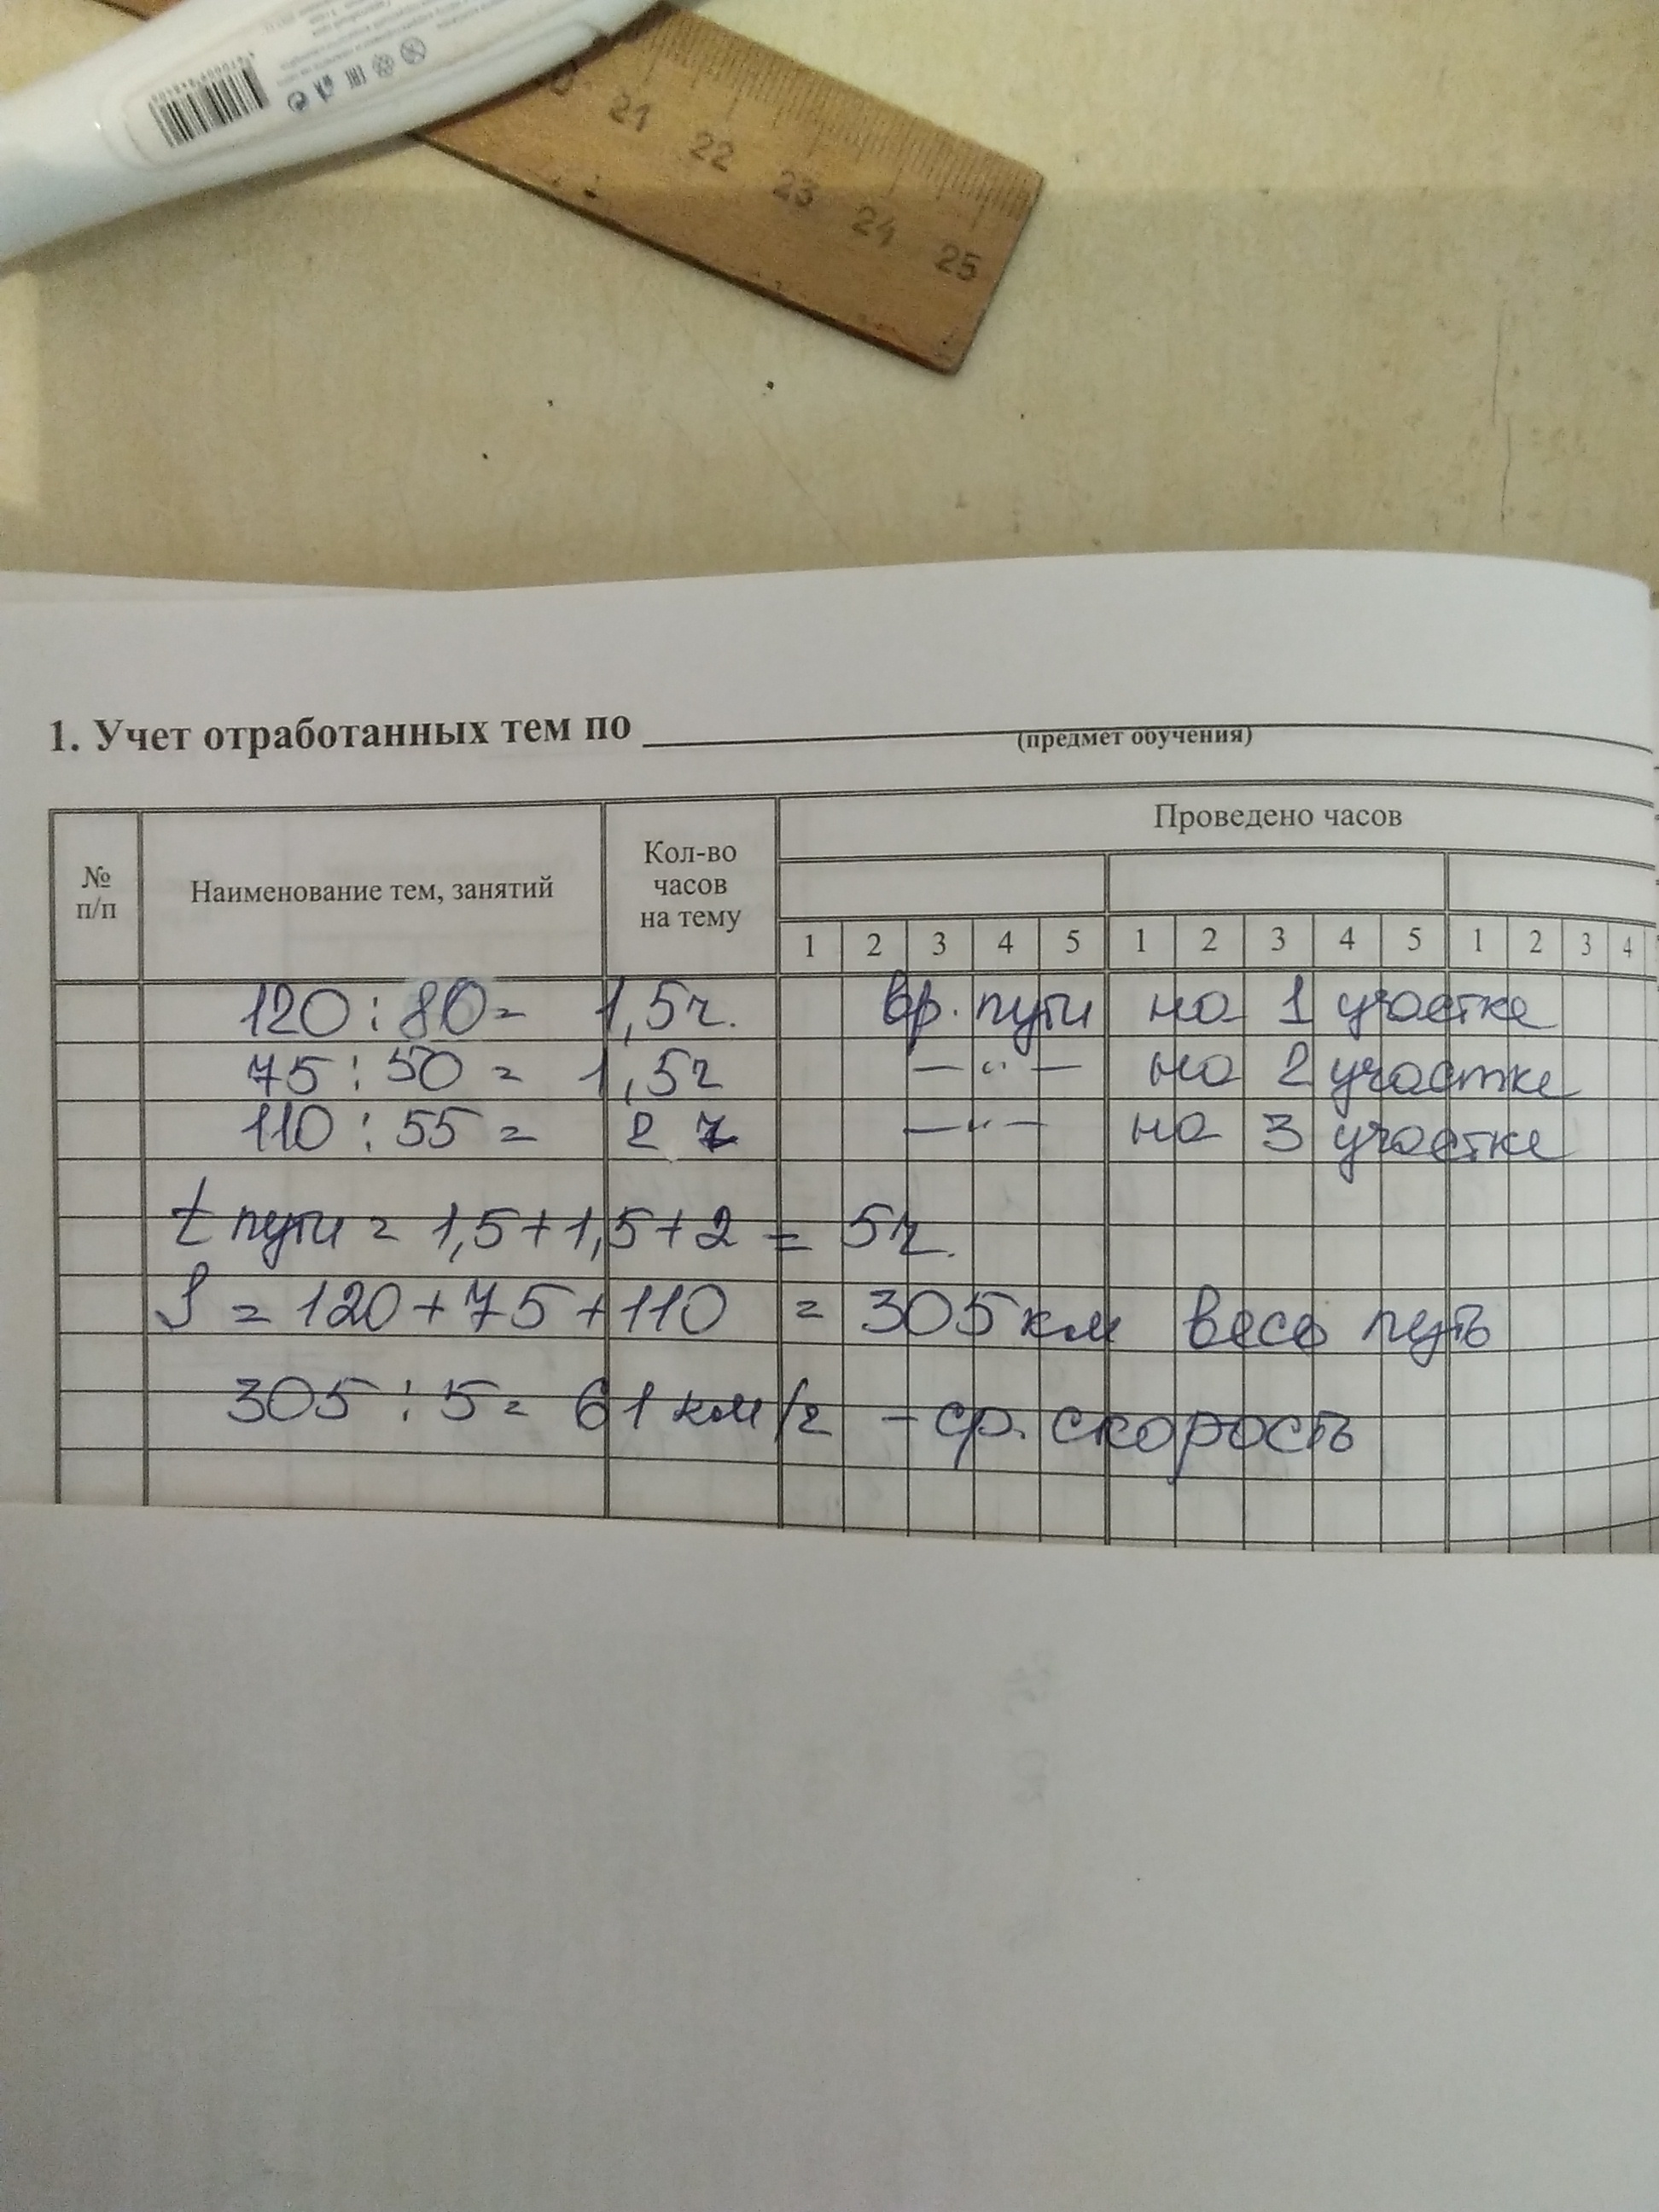 21 22 23 24 25
1. Учет отработанных тем по
(предмет обучения)
№ п/п
Наименование тем, занятий
Кол-во часов на тему
Проведено часов
1 2 3 4 5 1 2 3 4 5 1 2 3 4
120 : 80 = 1,5ч. вр. пути на 1 участке
75 : 50 = 1,5ч —"— на 2 участке
110 : 55 = 2 ч —"— на 3 участке
t пути = 1,5+1,5+2 = 5ч.
S = 120+75+110 = 305 км весь путь
305 : 5 = 61 км/ч - ср. скорость